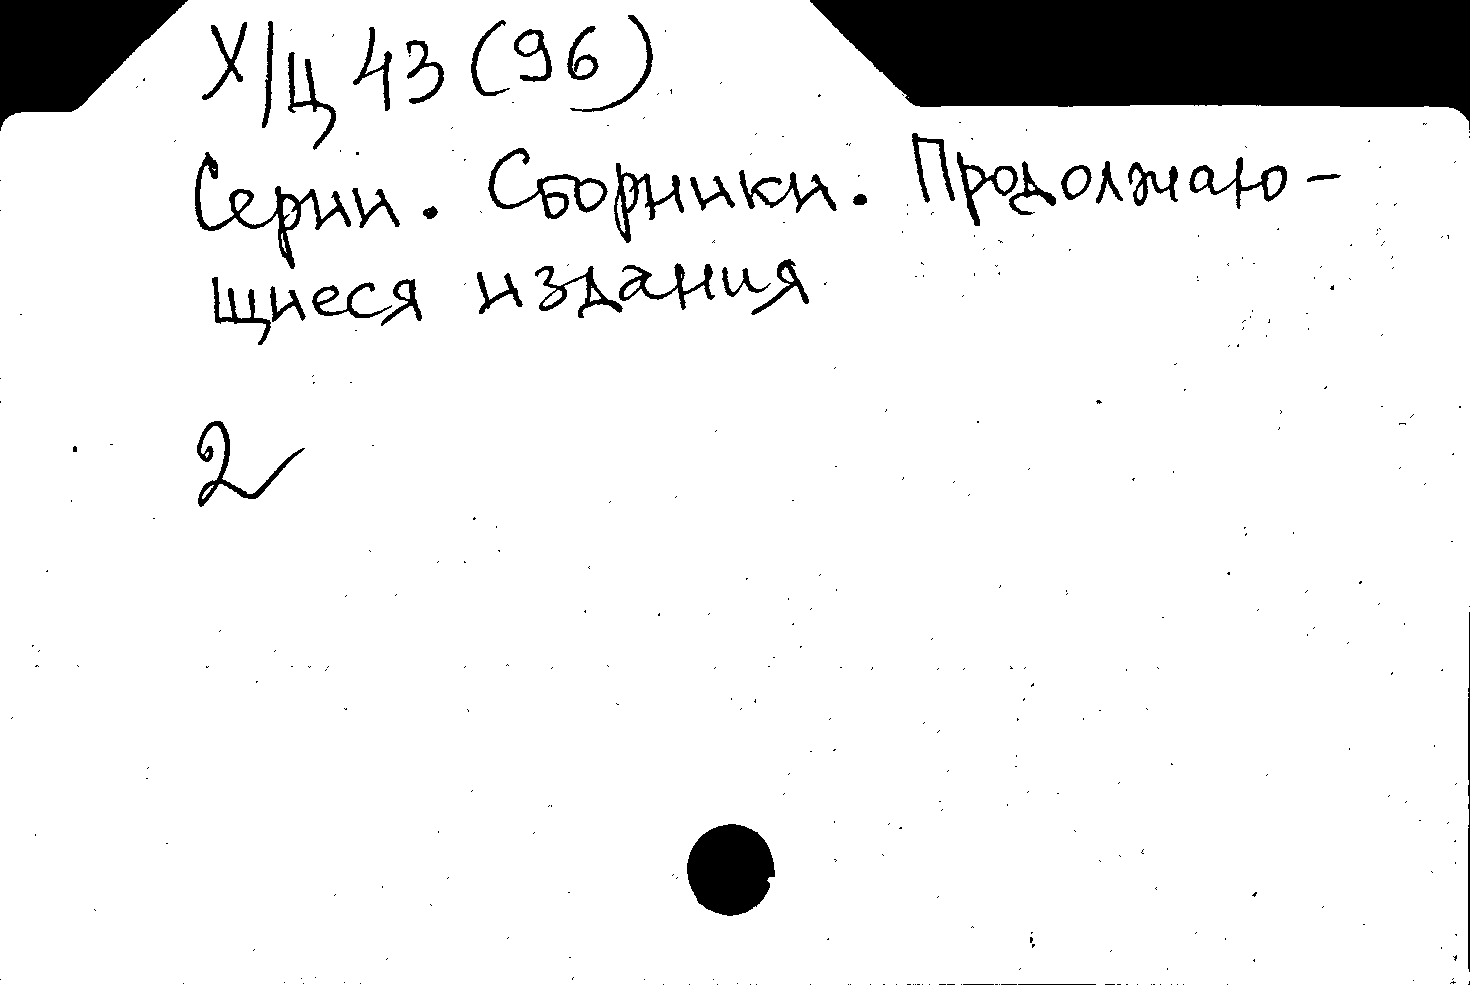 Х/Ц 43 (96)
Серии. Сборники. Продолжаю-
щиеся издания
2